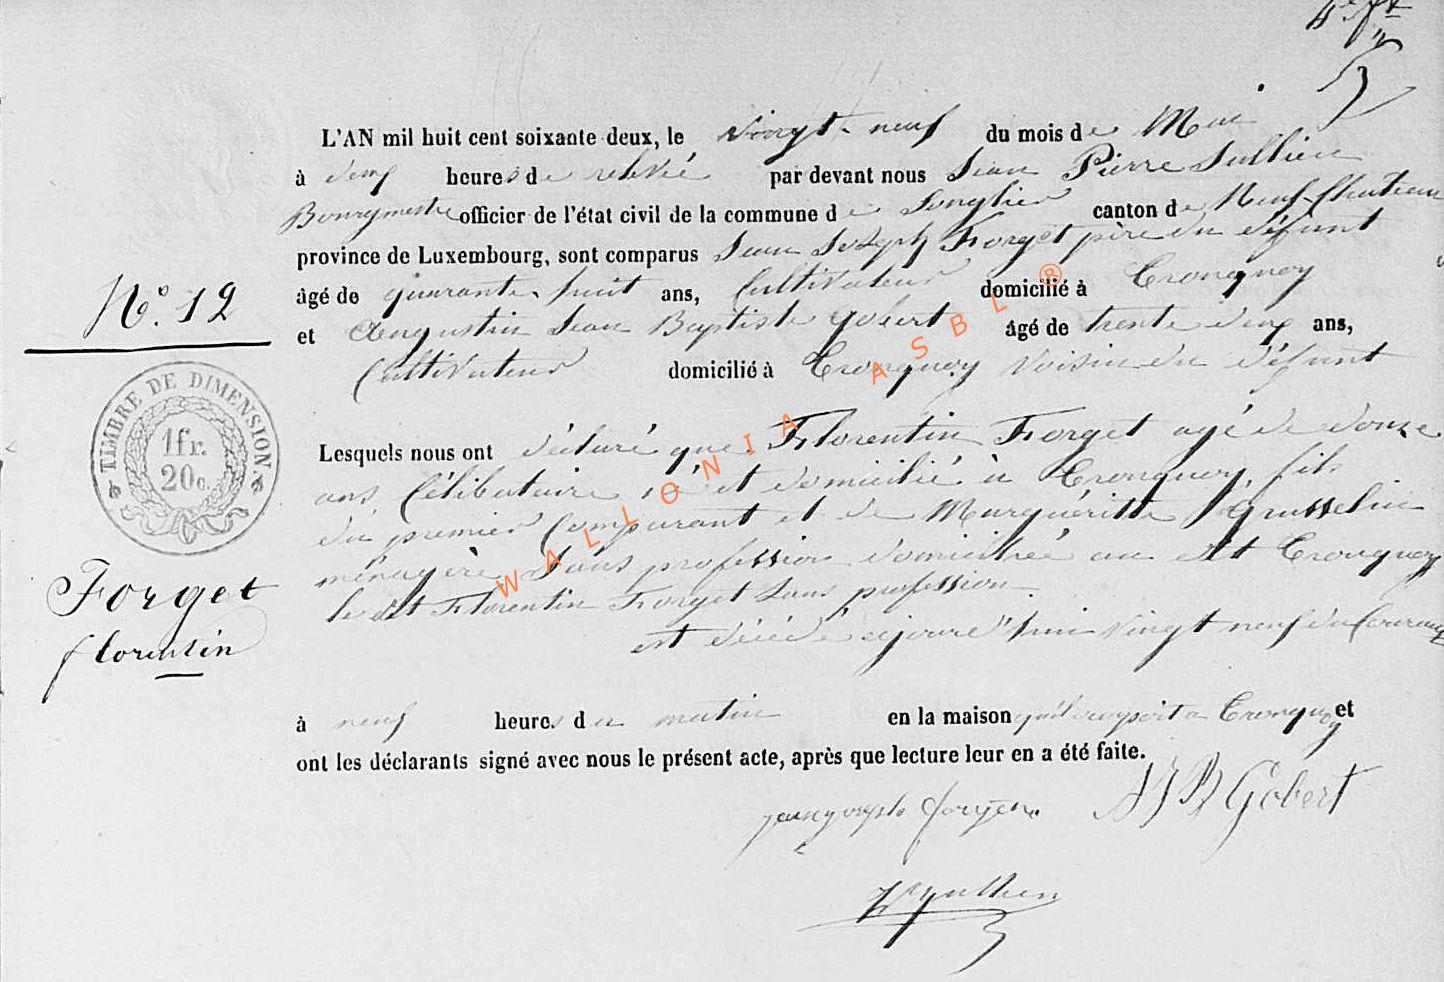 L'AN mil huit cent soixante deux, le vingt-neuf du mois de Mai
à deux heures de relevé par devant nous Jean Pierre Jullien
Bourgmestre officier de l'état civil de la commune de Longlier canton de Neuf-Chateau
province de Luxembourg, sont comparus Jean Joseph Forget père du défunt
âgé de quarante-huit ans, Cultivateur domicilié à Tronquoy
N°. 12
et Augustin Jean Baptiste Gobert âgé de trente deux ans,
Cultivateur domicilié à Tronquoy voisin du défunt
TIMBRE DE DIMENSION
1fr.
20c.
Lesquels nous ont déclaré que Florentin Forget agé de douze
ans Célibataire né et domicilié à Tronquoy, fils
du premier Comparant et de Marguéritte Grusselin
ménagère Sans profession domiciliée au dit Tronquoy
le dit Florentin Forget Sans profession
Forget
florentin
est décédé aujourd'hui vingt neuf du Courant
à neuf heures du matin en la maison qu'il occupoit a Tronquoy et
ont les déclarants signé avec nous le présent acte, après que lecture leur en a été faite.
jean joseph forget AJB Gobert
Jullien
WALLONIA ASBL ®